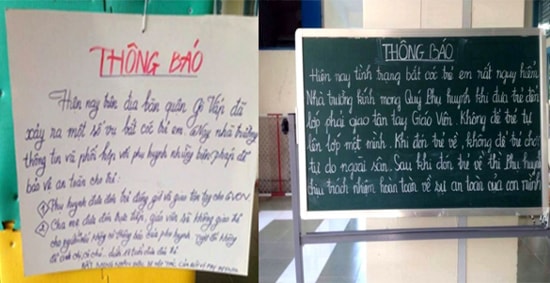 THÔNG BÁO
Hiện nay trên địa bàn quận Gò Vấp đã
xảy ra một số vụ bắt cóc trẻ em. Nay nhà trường
thông tin và phối hợp với phụ huynh những biện pháp để
bảo vệ an toàn cho trẻ:
① Phụ huynh đưa đón trẻ đúng giờ và giao tận tay cho GVCN.
② Cha mẹ đưa đón trực tiếp, giáo viên sẽ không giao trẻ
cho người lạ không có thông báo của phụ huynh. Tuyệt đối không
THÔNG BÁO
Hiện nay tình trạng bắt cóc trẻ em rất nguy hiểm.
Nhà trường kính mong Quý Phụ huynh khi đưa trẻ đến
lớp phải giao tận tay Giáo Viên. Không để trẻ tự
lên lớp một mình. Khi đón trẻ về, không để trẻ chơi
tự do ngoài sân. Sau khi đón trẻ về thì Phụ huynh
chịu trách nhiệm hoàn toàn về sự an toàn của con mình